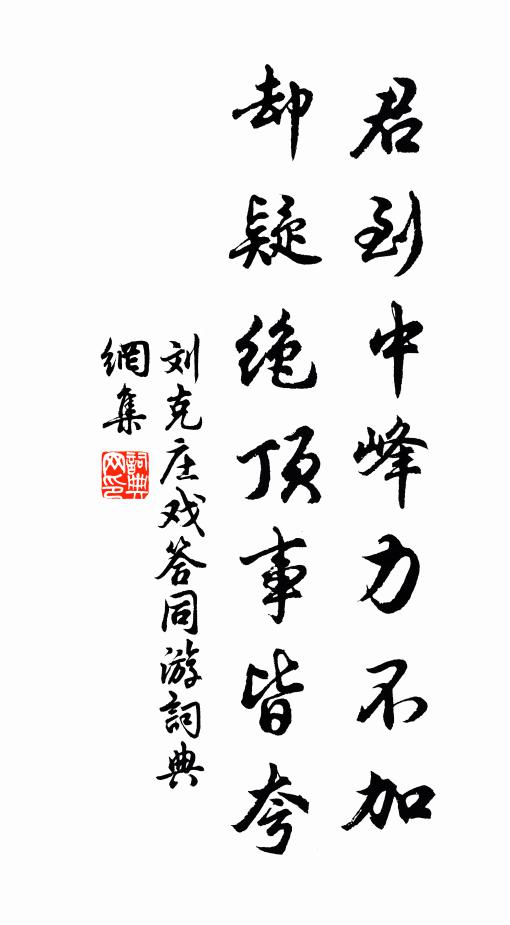 君到中峰力不加
却疑绝顶事皆夸
刘克庄戏答同游詞典
網集
詞典
网印